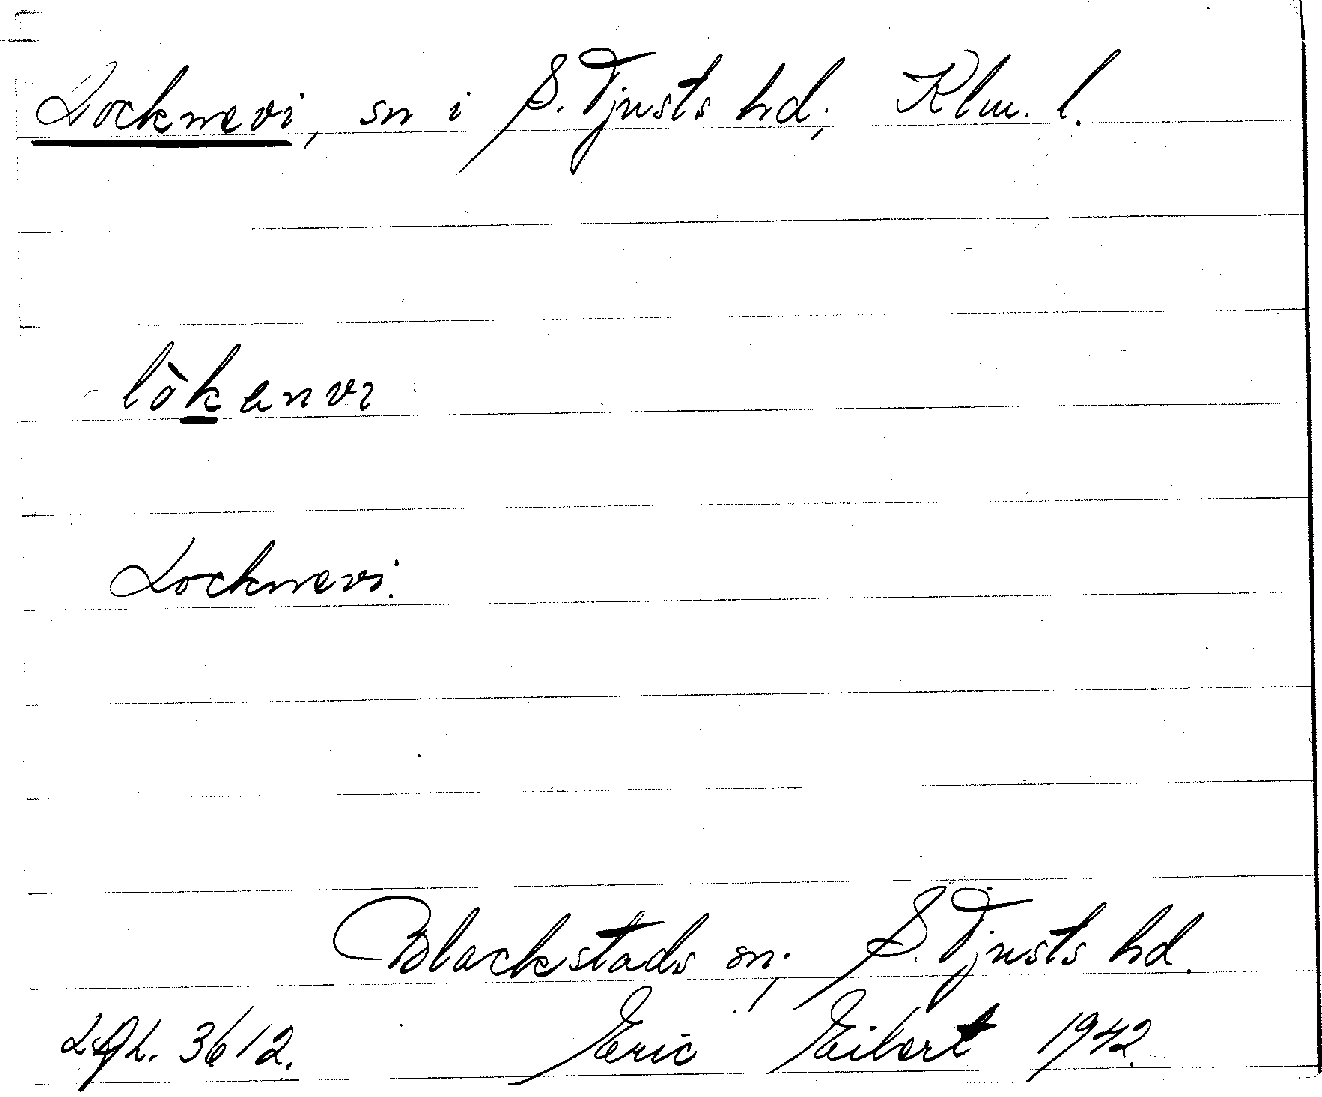 Locknevi, sn i S. Tjusts hd; Klm. l.
lòkanvi
Locknevi.
Blackstads sn; S. Tjusts hd.
3612. Eric Eibert 1942.